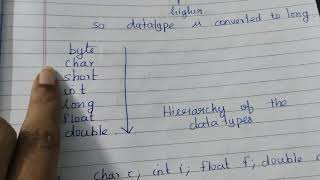 higher
so datatype is converted to long.
byte
char
short
int
long
float
double
Hierarchy of the
data types
char c; int i; float f; double